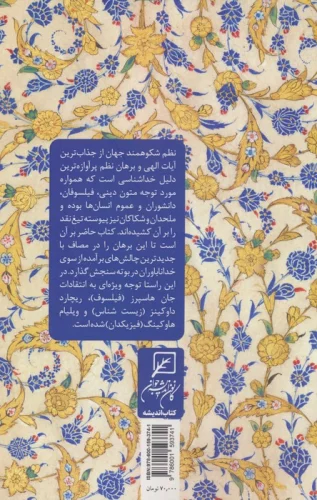 نظم شکوهمند جهان از جذاب‌ترین
آیات الهی و برهان نظم پرآوازه‌ترین
دلیل خداشناسی است که همواره
مورد توجه متون دینی، فیلسوفان،
دانشوران و عموم انسان‌ها بوده و
ملحدان و شکاکان نیز پیوسته تیغ نقد
را بر آن کشیده‌اند. کتاب حاضر بر آن
است تا این برهان را در مصاف با
جدیدترین چالش‌های برآمده از سوی
خداناباوران در بوته سنجش گذارد. در
این راستا توجه ویژه‌ای به انتقادات
جان هاسپرز (فیلسوف)، ریچارد
داوکینز (زیست شناس) و ویلیام
هاوکینگ (فیزیکدان) شده است.
کانون اندیشه جوان
کتاب اندیشه
۷۰,۰۰۰ تومان